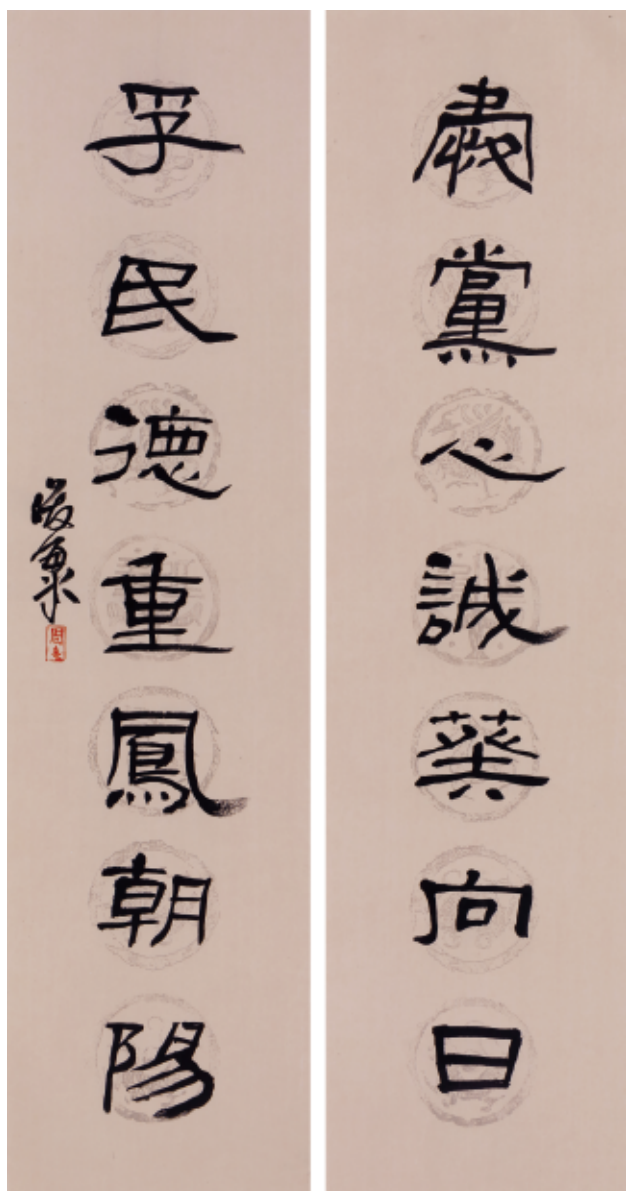 肅黨心誠葵向日
孚民德重鳳朝陽